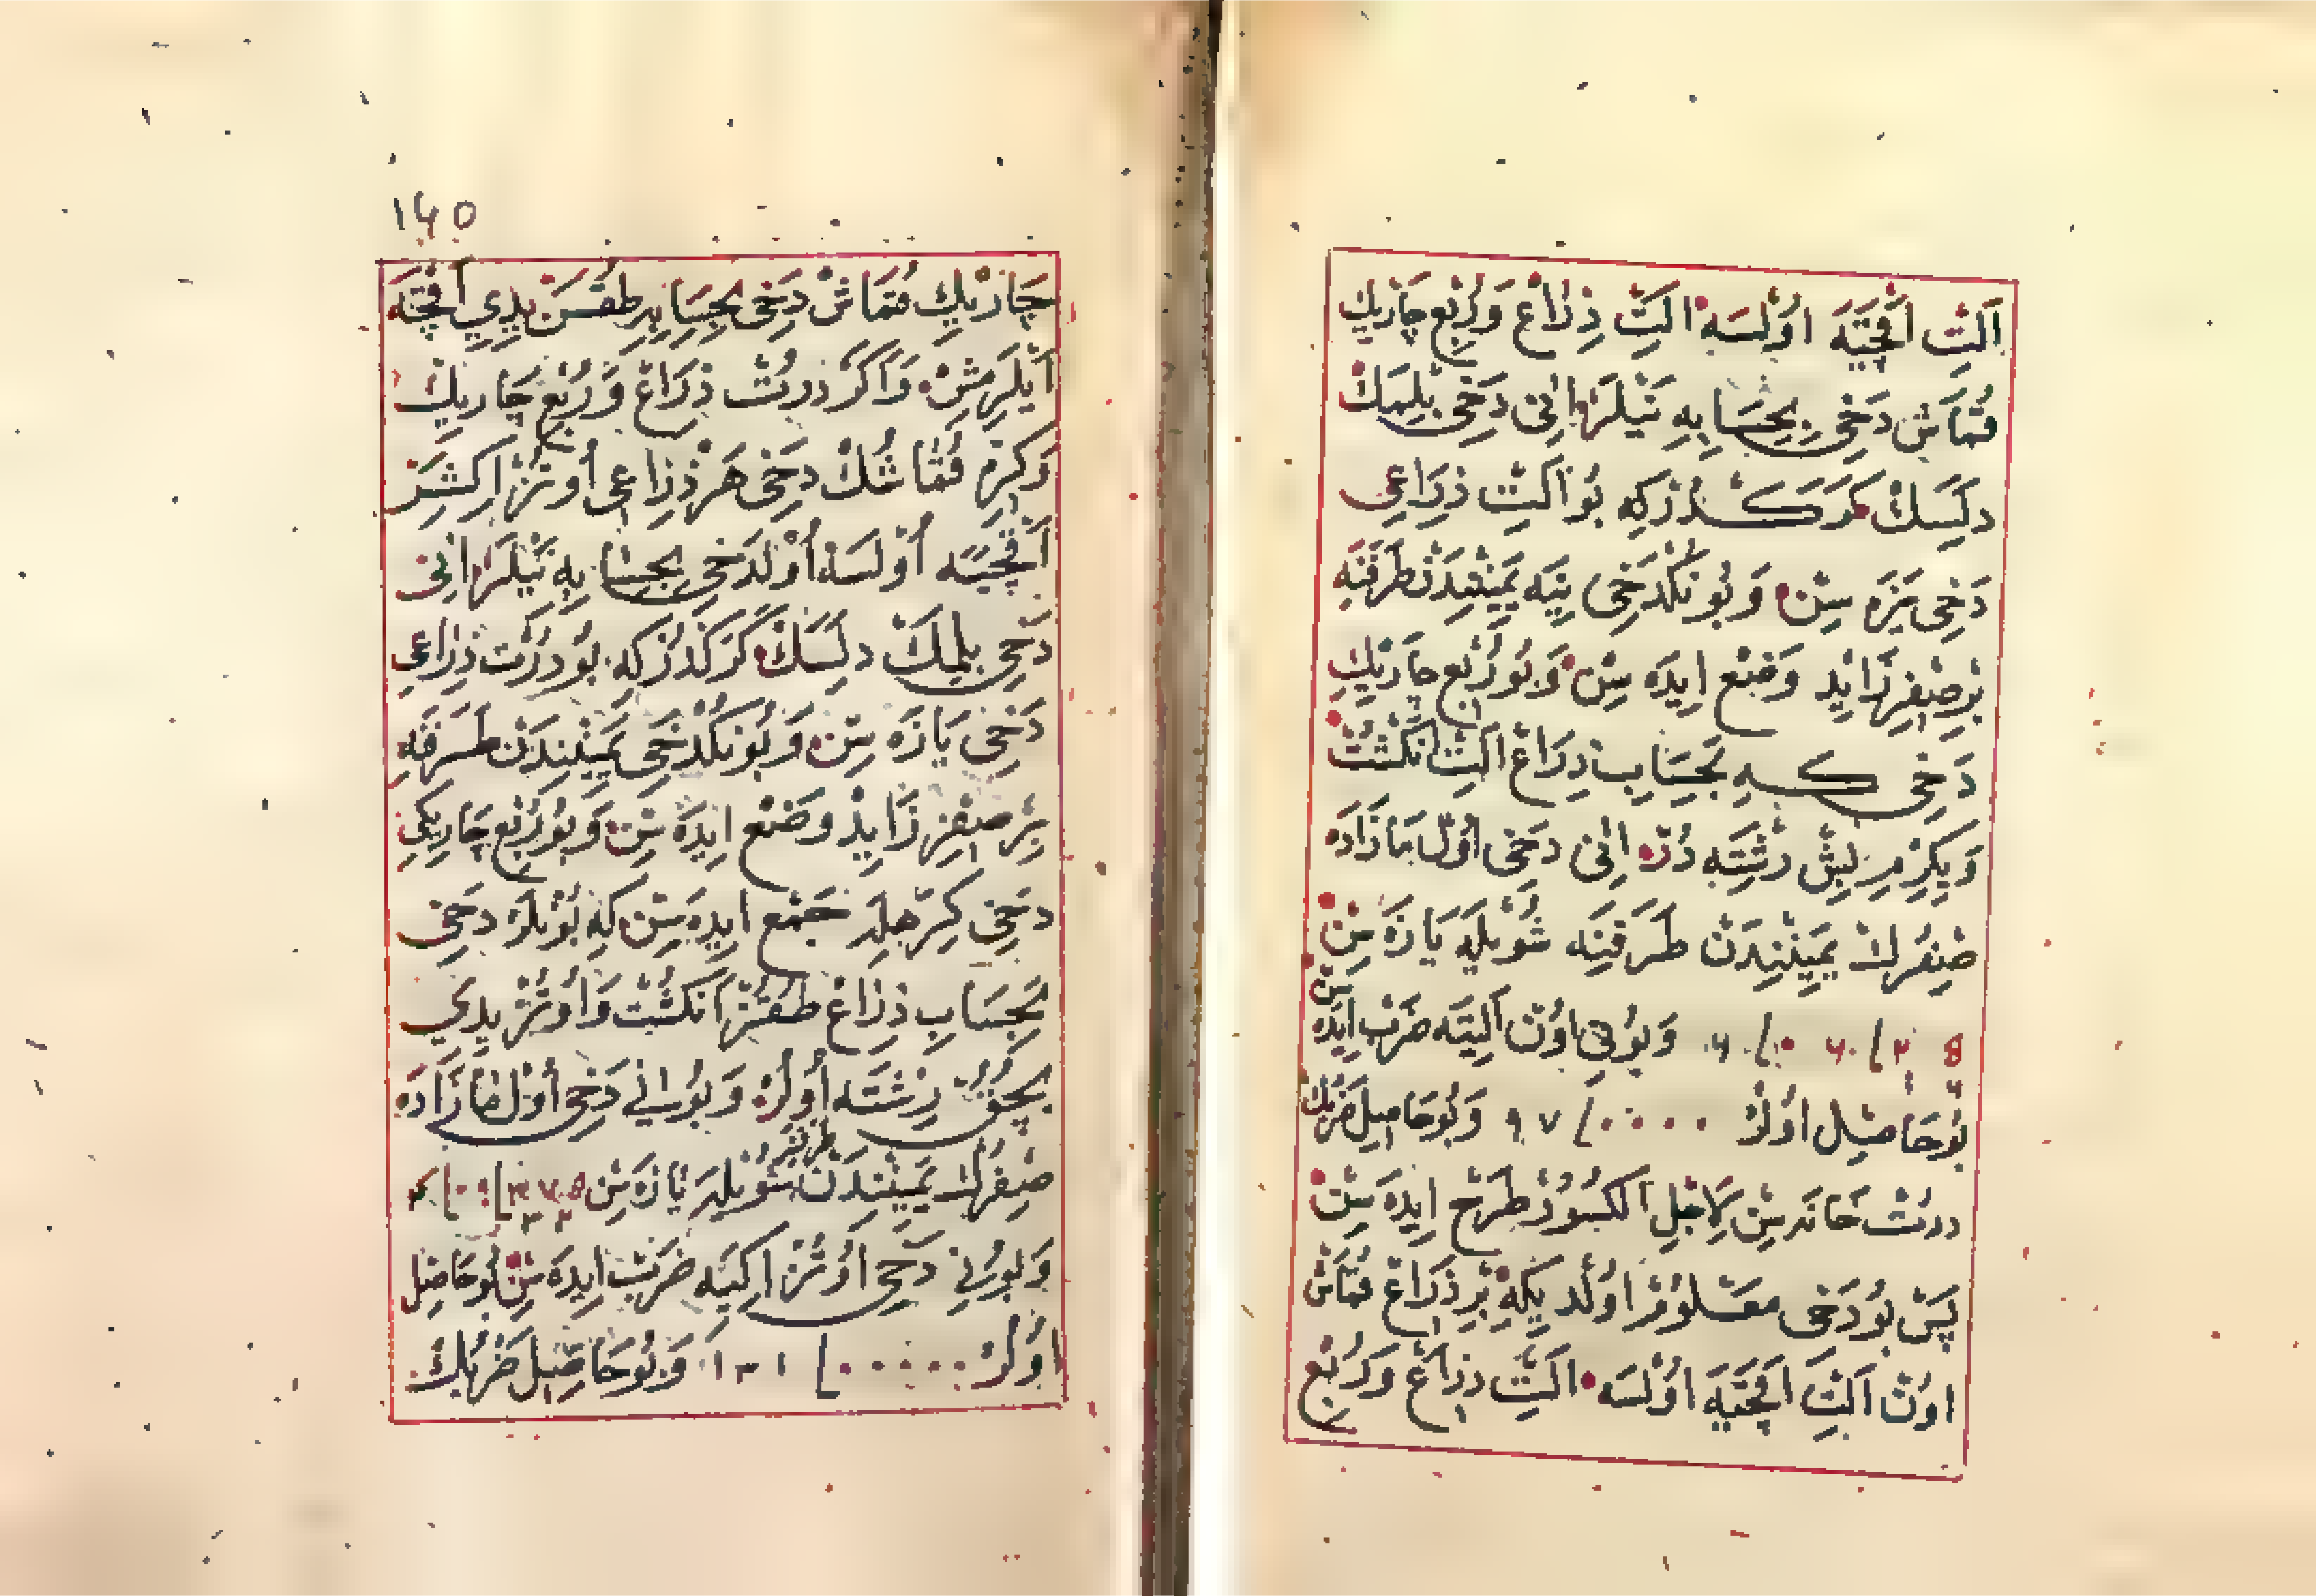 اَلتِ اَقْچَیَه اوُلسَه اَلتِ ذِرَاعْ وَرُبْعِ چَارَیْكِ
قُمَاش دَخِی بِحِسَابِه نَیْلَرْ اِنِی دَخِی بِلِمَكْ
دِلَسَكْ كَرَكْدُرْكِه بُو اَلتِ ذِرَاعِی
دَخِی یَزَه سِنْ وَ بُونُكْدَخِی یِنَه یَمِینِنْدَنْ طَرَفِنَه
بِرْصِفِرْ زَایِدْ وَضْعْ اِیدَه سِنْ وَبُو رُبْعِ چَارَیْكِ
دَخِی كه بَحِسَابِ ذِرَاعْ اَلتِ اَنْكُشْتْ
وَیِكِرْمِ بِشْ رِشْتَه دُرْ اِنِی دَخِی اَوَّل مَازَادَه
صِفِرُكْ یَمِینِنْدَنْ طَرَفِنَه شُویلَه یَازَه سِنْ
وَبُونِی اوُنْ اَلتِیَه ضَرْب اِیدَه سِنْ
بُوحَاصِل اوُلُرْ ٩٧ وَبُوحَاصِلِ ضَرْبُكْ
دُرتْ خَانَه سِنْ لِاَجْلِ الكُسُورْ طَرْح اِیدَه سِنْ
پَسْ بُو دَخِی مَعْلُومْ اوُلْدِ یكِه بِرْ ذِرَاعْ قُمَاشْ
اوُنْ اَلتِ اَقْچَیَه اوُلْسَه اَلتِ ذِرَاعْ وَ رُبْعِ
١٤٥
چَارَیْكِ قُمَاشْ دَخِی بِحِسَابِه طُقْسَنْ یِدِی اَقْچَه
اَیْلَرِمِشْ وَاَكَرْ دُرتْ ذِرَاعْ وَ رُبْعِ چَارَیْكْ
وَ كِرْم قُمَاشُكْ دَخِی هَرْ ذِرَاعِی اوُتُزْ اِكِشَرْ
اَقْچَیَه اوُلسَه اوُلْدَخِی بِحِسَابِه نَیْلَرْ اِنِی
دَخِی بِلِمَكْ دِلَسَكْ كَرَكْدُرْكِه بُو دُرْتْ ذِرَاعِی
دَخِی یَازَه سِنْ وَ بُونُكْدَخِی یَمِینِنْدَنْ طَرَفِنَه
بِرْصِفِرْ زَایِدْ وَضْعْ اِیدَه سِنْ وَ بُو رُبْعِ چَارَیْكِی
دَخِی كِرَه یله جَمْع اِیدَه سِنْ كِه بُونْلَرْ دَخِی
بَحِسَابِ ذِرَاعْ طُقُزْ اَنْكُشْتْ وَ اوُتُزْ یِدِی
بُچُقْ رِشْتَه اوُلُرْ وَ بُونِی دَخِی اَوَّل مَازَادَه
صِفِرُكْ یَمِینِنْدَنْ طَرَفِنَه شُویلَه یَازَه سِنْ
وَبُونِی دَخِی اوُتُزْ اِكِیَه ضَرْب اِیدَه سِنْ بُوحَاصِل
اوُلُرْ ١٣١ وَ بُوحَاصِلِ ضَرْبُكْ